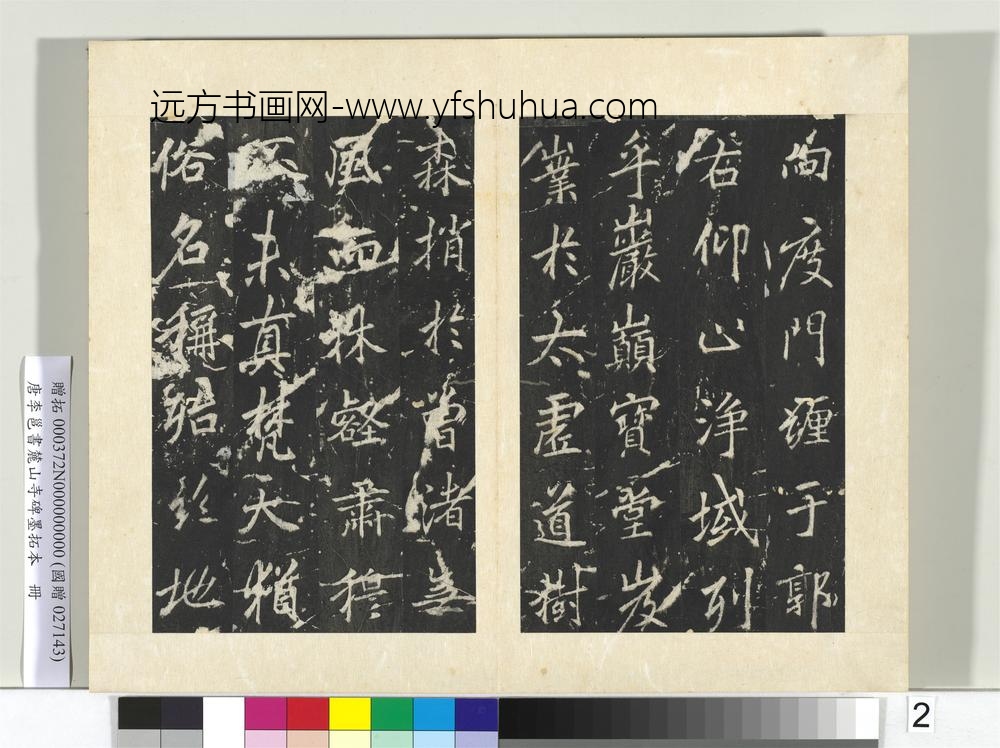 远方书画网-www.yfshuhua.com
向度門纏于郭
右仰止淨域列
乎巖巔寶堂岌
業於太虛道樹
森梢於曾渚無
風而林壑肅穆
未真梵天猶
俗名稱殆絕地
贈拓 000372N000000000 (國贈 027143)
唐李邕書麓山寺碑墨拓本 冊
2